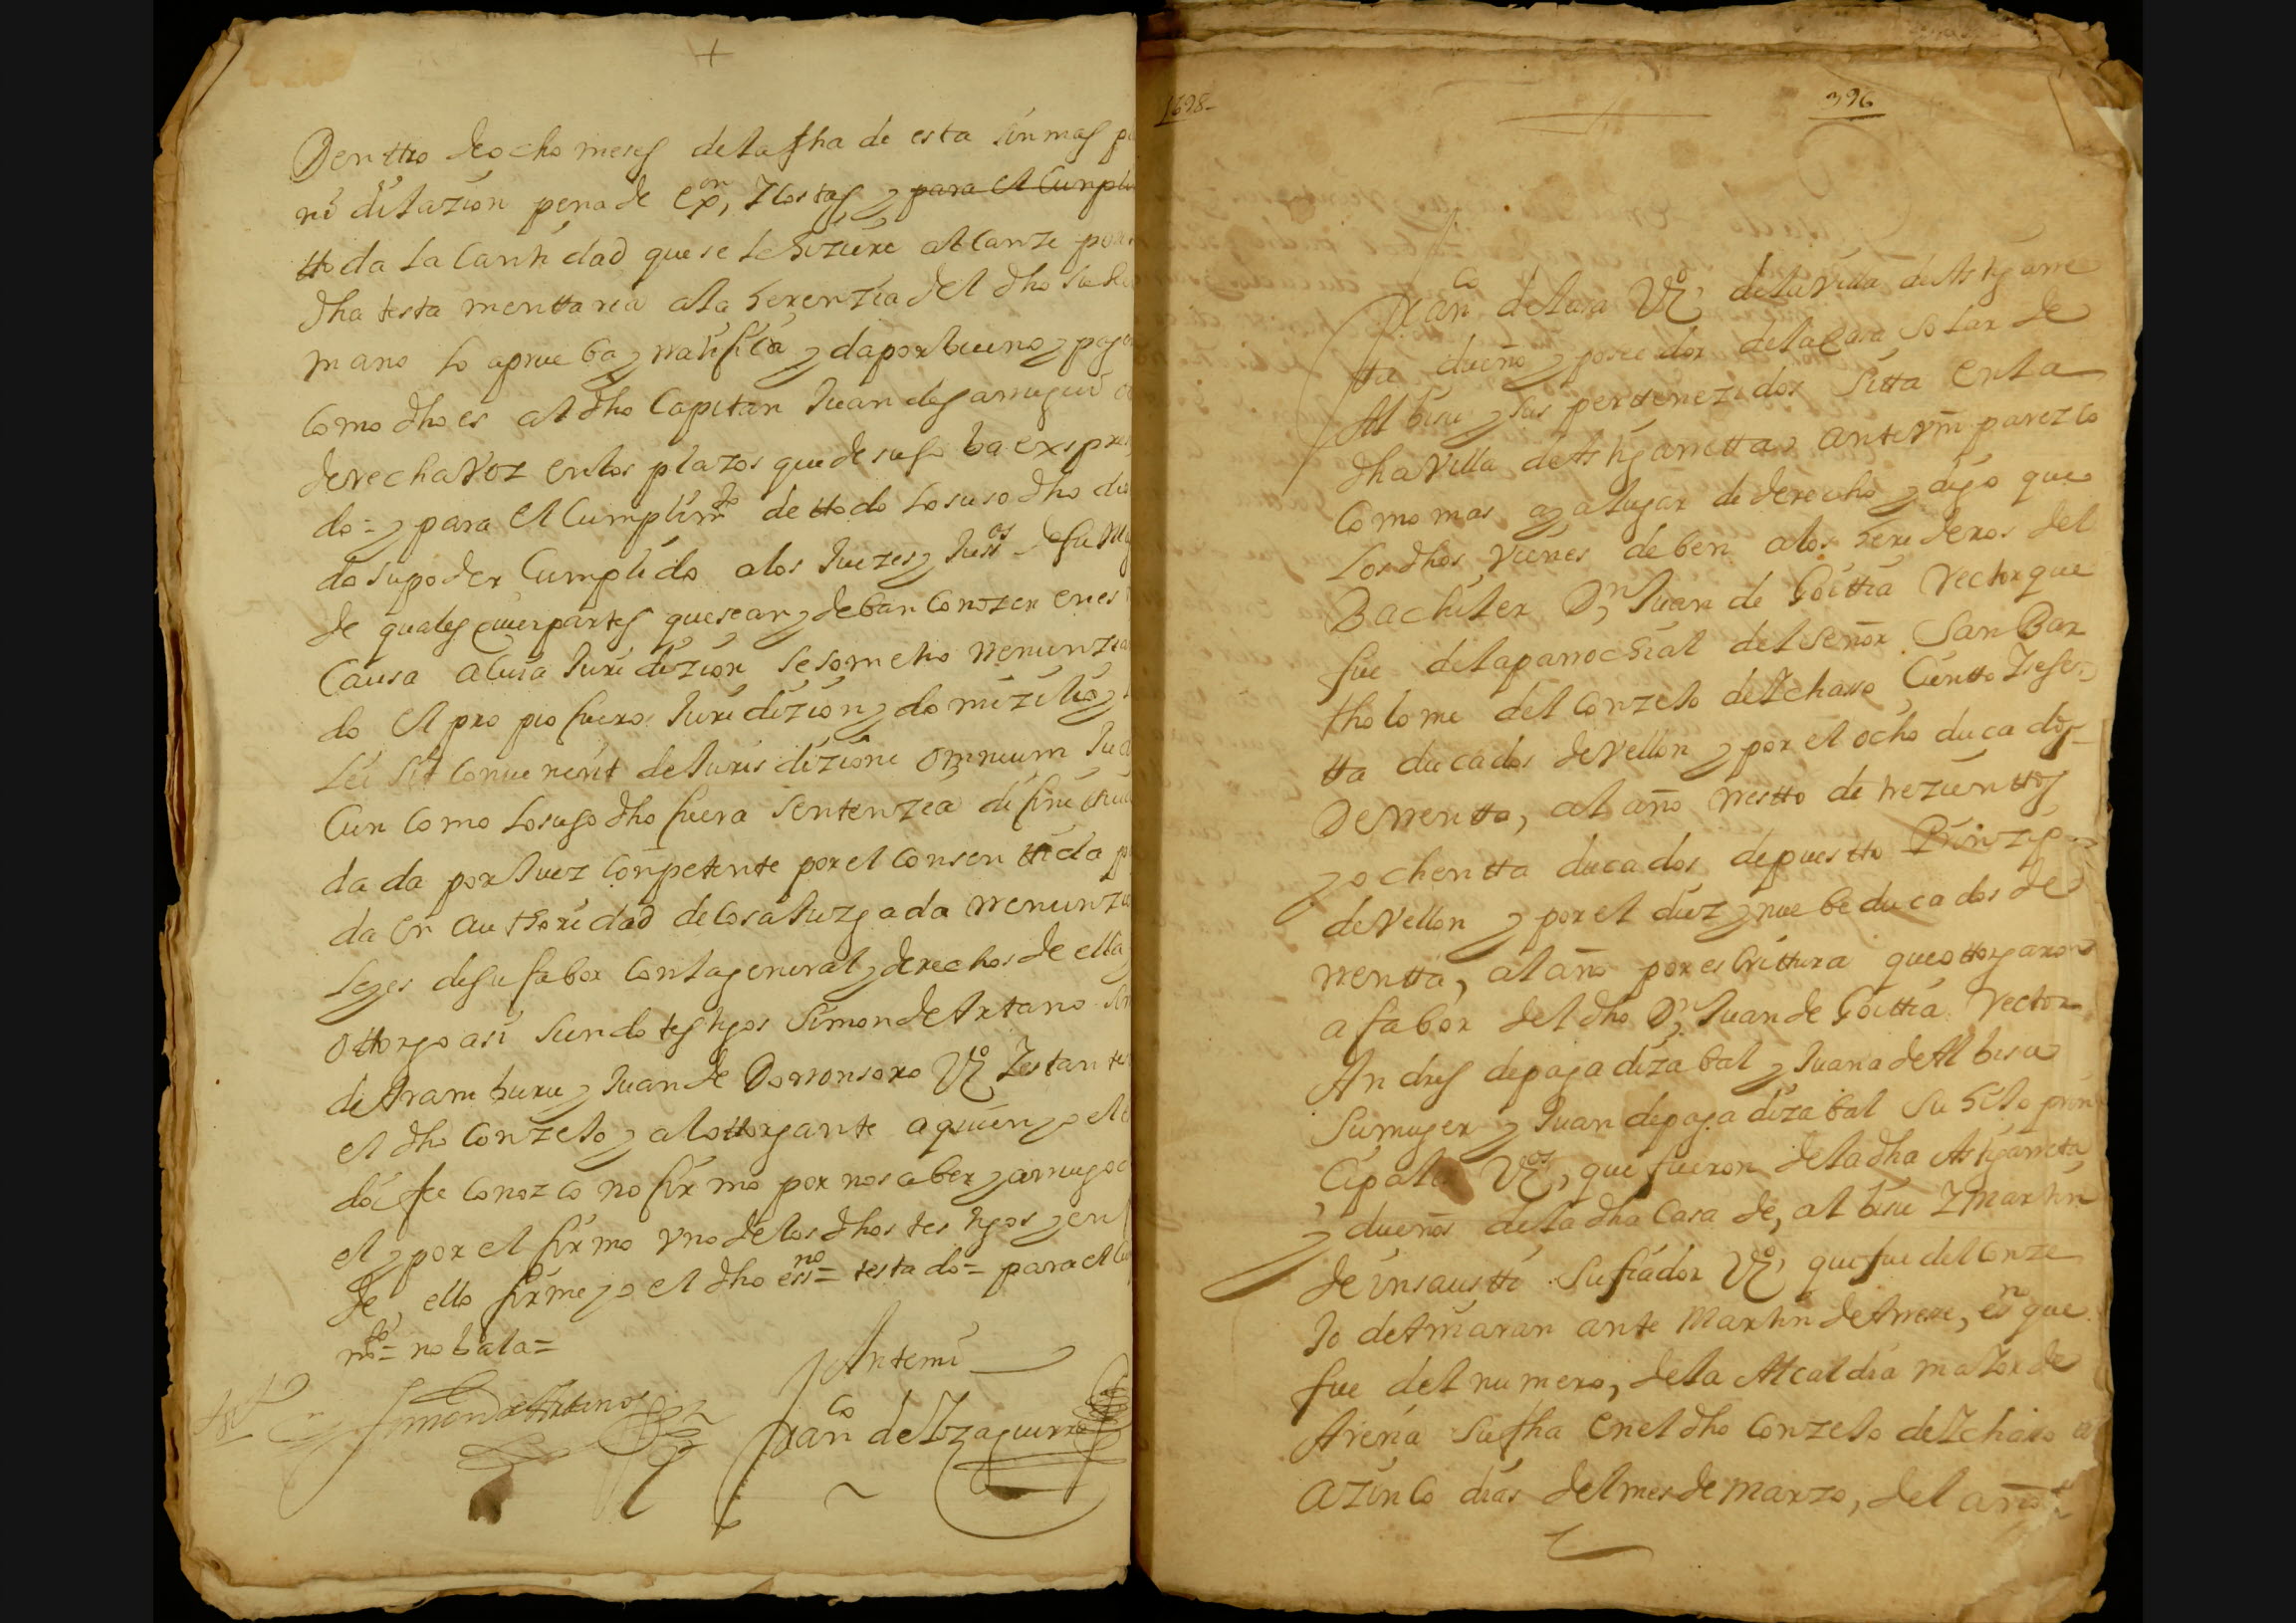 +
Dentro de ocho meses de la fha de esta sin mas
ni dilazion pena de exon, Y costas y para el Cumpli
ttoda la Cantidad que se le hiziere alcanze por
dha testamenttaria a la herenzia del dho su her
mano lo aprueba y rratifica y da por bueno y
Como dho es al dho Capitan Juan de
derecha voz en los plazos que de suso ba expre
do = y para el Cumplimto de ttodo lo suso dho dio
do su poder Cumplido a los Juezes y Jusas de su
de qualesquier partes que sean y deban Conozer en es
Causa a Cuia Juridizion se sometio rrenunzia
do el propio fuero Juridizion y domizilio y
Lei sit Conuenerit de Juris dizione omnium Ju
Cun Como lo suso dho fuera Sentenzia difinitiu
dada por Juez Conpetente por el Consenttida
da en authoridad de Cosa Juzgada rrenunzio
Leyes de su fabor Con la general y derechos de ella
ottorgo asi siendo testigos Simon de Artano
de Aramburu y Juan de Dorronsoro Vos Y estantes
el dho Conzejo y al ottorgante a quien yo el
doi fee Conozco no firmo por no saber y a rruego
el y por el firmo vno de los dhos testigos y en
de ello firme yo el dho essno = testado = para el
mto = no bala =
Simon de Artano
Ante mi
Franco de Yzaguirre
1698-
396
Franco de Lasa Vo de la Villa de Astigarre
ta dueño y poseedor de la Casa Solar de
Albisu y sus pertenezidos Sitta en la
dha Villa de Astigarretta, ante Vm parezco
Como mas aya lugar de derecho y digo que
Los dhos vienes deben a los herederos del
Bachiler Dn Juan de Goittia Rector que
fue de la parrochial del Señor San Bar
tholome del Conzejo de Ychaso Cientto Y sesen
tta ducados de Vellon y por el ocho ducados
De rrentta, al año rrestto de trezienttos
y ochentta ducados de puestto Prinzipal
de Vellon y por el diez y nuebe ducados de
rrentta, al año por escrittura que ottorgaron
a fabor del dho Dn Juan de Goittia Rector
Andres de pagadizabal y Juana de Albisu
Su muger y Juan de pagadizabal su hijo prin
Cipales Vos, que fueron de la dha Astigarreta
y dueños de la dha Casa de, albisu Y Martin
de insausti Su fiador Vo, que fue del Conze
Jo de Amaran ante Martin de Arrese, esn que
fue del numero, de la Alcaldia maYor de
Areria Su fha en el dho Conzejo de Ychaso a
a zinco dias del mes de marzo, del año